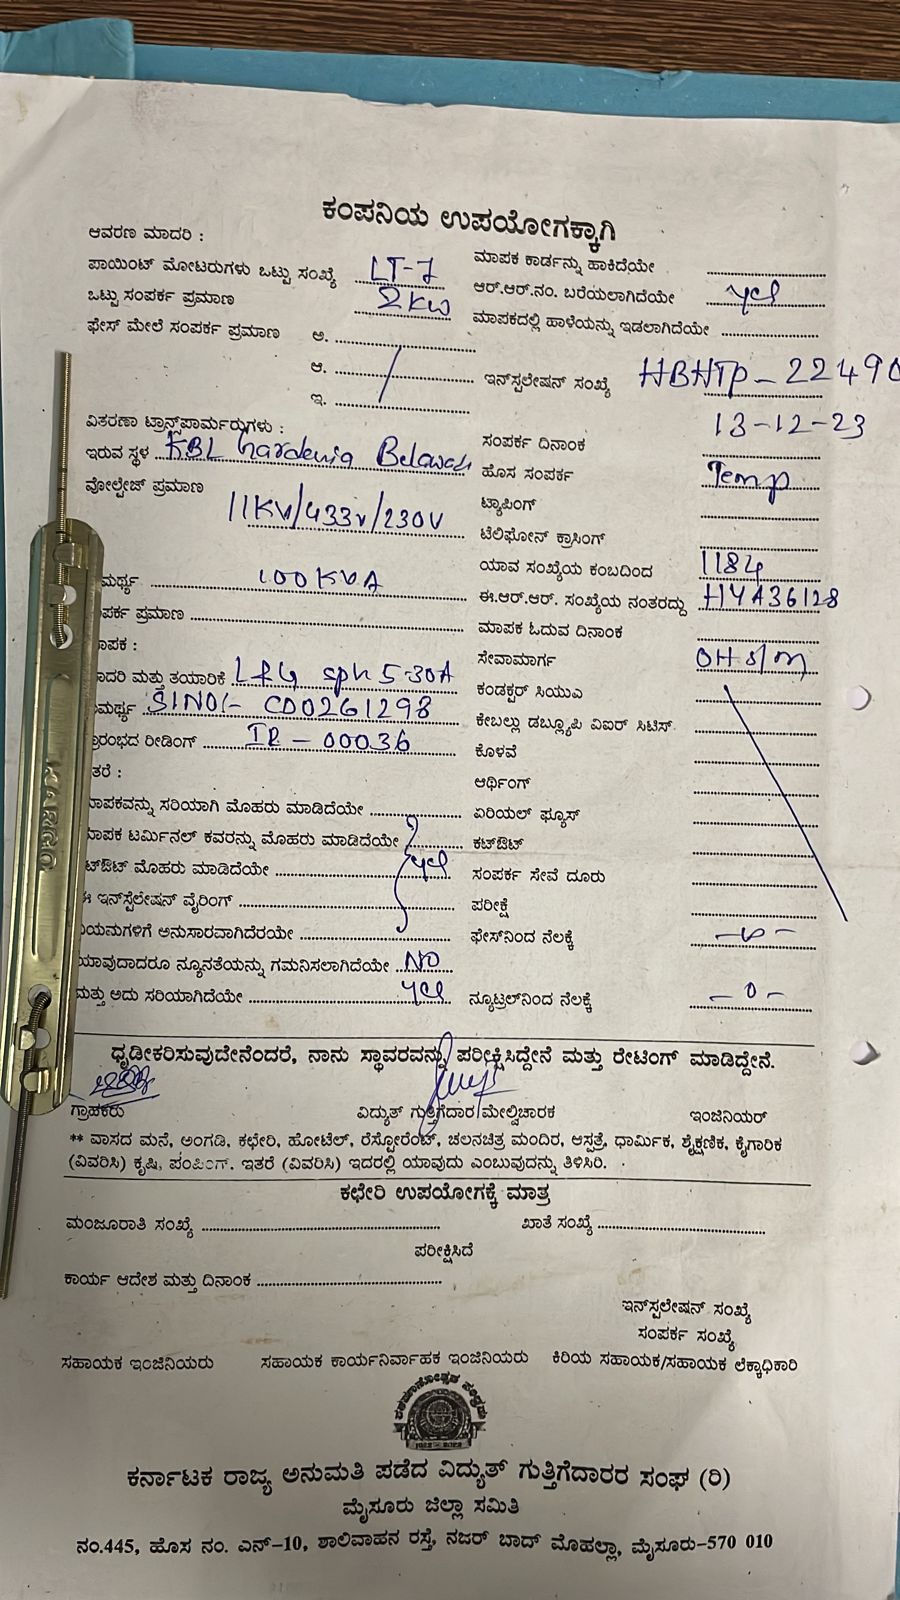 ಕಂಪನಿಯ ಉಪಯೋಗಕ್ಕಾಗಿ
ಆವರಣ ಮಾದರಿ :
ಪಾಯಿಂಟ್ ಮೋಟರುಗಳು ಒಟ್ಟು ಸಂಖ್ಯೆ LT-7
ಒಟ್ಟು ಸಂಪರ್ಕ ಪ್ರಮಾಣ 2KW
ಫೇಸ್ ಮೇಲೆ ಸಂಪರ್ಕ ಪ್ರಮಾಣ ಅ.
ಆ.
ಇ.
ವಿತರಣಾ ಟ್ರಾನ್ಸ್‌ಪಾರ್ಮರುಗಳು :
ಇರುವ ಸ್ಥಳ KBL Gardenia
ವೋಲ್ಟೇಜ್ ಪ್ರಮಾಣ
11KV/433V/230V
ಮರ್ಥ್ಯ 100KVA
ಪರ್ಕ ಪ್ರಮಾಣ
ಾಪಕ :
ಾದರಿ ಮತ್ತು ತಯಾರಿಕೆ L&G sph 5-30A
ಮರ್ಥ್ಯ SlNo/- C00261298
ಪ್ರಾರಂಭದ ರೀಡಿಂಗ್ IR-00036
ತರೆ :
ಾಪಕವನ್ನು ಸರಿಯಾಗಿ ಮೊಹರು ಮಾಡಿದೆಯೇ
ಾಪಕ ಟರ್ಮಿನಲ್ ಕವರನ್ನು ಮೊಹರು ಮಾಡಿದೆಯೇ
ಟ್‌ಔಟ್ ಮೊಹರು ಮಾಡಿದೆಯೇ yes
ಈ ಇನ್‌ಸ್ಟೆಲೇಷನ್ ವೈರಿಂಗ್
ಯಮಗಳಿಗೆ ಅನುಸಾರವಾಗಿದೆರಯೇ
ಯಾವುದಾದರೂ ನ್ಯೂನತೆಯನ್ನು ಗಮನಿಸಲಾಗಿದೆಯೇ NO
ಮತ್ತು ಅದು ಸರಿಯಾಗಿದೆಯೇ yes
ಮಾಪಕ ಕಾರ್ಡನ್ನು ಹಾಕಿದೆಯೇ
ಆರ್.ಆರ್.ನಂ. ಬರೆಯಲಾಗಿದೆಯೇ yes
ಮಾಪಕದಲ್ಲಿ ಹಾಳೆಯನ್ನು ಇಡಲಾಗಿದೆಯೇ
ಇನ್‌ಸ್ಟಲೇಷನ್ ಸಂಖ್ಯೆ HBHTP-22490
ಸಂಪರ್ಕ ದಿನಾಂಕ 13-12-23
ಹೊಸ ಸಂಪರ್ಕ Temp
ಟ್ಯಾಪಿಂಗ್
ಟೆಲಿಫೋನ್ ಕ್ರಾಸಿಂಗ್
ಯಾವ ಸಂಖ್ಯೆಯ ಕಂಬದಿಂದ 1184
ಈ.ಆರ್.ಆರ್. ಸಂಖ್ಯೆಯ ನಂತರದ್ದು HYA36128
ಮಾಪಕ ಓದುವ ದಿನಾಂಕ
ಸೇವಾಮಾರ್ಗ OH S/M
ಕಂಡಕ್ಟರ್ ಸಿಯುಎ
ಕೇಬಲ್ಲು ಡಬ್ಲ್ಯೂಪಿ ವಿಐಆರ್ ಸಿಟಿಸ್
ಕೊಳವೆ
ಆರ್ಥಿಂಗ್
ಏರಿಯಲ್ ಫ್ಯೂಸ್
ಕಟ್‌ಔಟ್
ಸಂಪರ್ಕ ಸೇವೆ ದೂರು
ಪರೀಕ್ಷೆ
ಫೇಸ್‌ನಿಂದ ನೆಲಕ್ಕೆ -0-
ನ್ಯೂಟ್ರಲ್‌ನಿಂದ ನೆಲಕ್ಕೆ -0-
ಧೃಢೀಕರಿಸುವುದೇನೆಂದರೆ, ನಾನು ಸ್ಥಾವರವನ್ನು ಪರೀಕ್ಷಿಸಿದ್ದೇನೆ ಮತ್ತು ರೇಟಿಂಗ್ ಮಾಡಿದ್ದೇನೆ.
ಗ್ರಾಹಕರು ವಿದ್ಯುತ್ ಗುತ್ತಿಗೆದಾರ/ಮೇಲ್ವಿಚಾರಕ ಇಂಜಿನಿಯರ್
** ವಾಸದ ಮನೆ, ಅಂಗಡಿ, ಕಛೇರಿ, ಹೋಟೆಲ್, ರೆಸ್ಟೋರೆಂಟ್, ಚಲನಚಿತ್ರ ಮಂದಿರ, ಆಸ್ಪತ್ರೆ, ಧಾರ್ಮಿಕ, ಶೈಕ್ಷಣಿಕ, ಕೈಗಾರಿಕ
(ವಿವರಿಸಿ) ಕೃಷಿ, ಪಂಪಿಂಗ್. ಇತರೆ (ವಿವರಿಸಿ) ಇದರಲ್ಲಿ ಯಾವುದು ಎಂಬುವುದನ್ನು ತಿಳಿಸಿರಿ.
ಕಛೇರಿ ಉಪಯೋಗಕ್ಕೆ ಮಾತ್ರ
ಮಂಜೂರಾತಿ ಸಂಖ್ಯೆ ಖಾತೆ ಸಂಖ್ಯೆ
ಪರೀಕ್ಷಿಸಿದೆ
ಕಾರ್ಯ ಆದೇಶ ಮತ್ತು ದಿನಾಂಕ
ಇನ್‌ಸ್ಟಲೇಷನ್ ಸಂಖ್ಯೆ
ಸಂಪರ್ಕ ಸಂಖ್ಯೆ
ಸಹಾಯಕ ಇಂಜಿನಿಯರು ಸಹಾಯಕ ಕಾರ್ಯನಿರ್ವಾಹಕ ಇಂಜಿನಿಯರು ಕಿರಿಯ ಸಹಾಯಕ/ಸಹಾಯಕ ಲೆಕ್ಕಾಧಿಕಾರಿ
1922-2022
ಕರ್ನಾಟಕ ರಾಜ್ಯ ಅನುಮತಿ ಪಡೆದ ವಿದ್ಯುತ್ ಗುತ್ತಿಗೆದಾರರ ಸಂಘ (ರಿ)
ಮೈಸೂರು ಜಿಲ್ಲಾ ಸಮಿತಿ
ನಂ.445, ಹೊಸ ನಂ. ಎನ್-10, ಶಾಲಿವಾಹನ ರಸ್ತೆ, ನಜರ್ ಬಾದ್ ಮೊಹಲ್ಲಾ, ಮೈಸೂರು-570 010